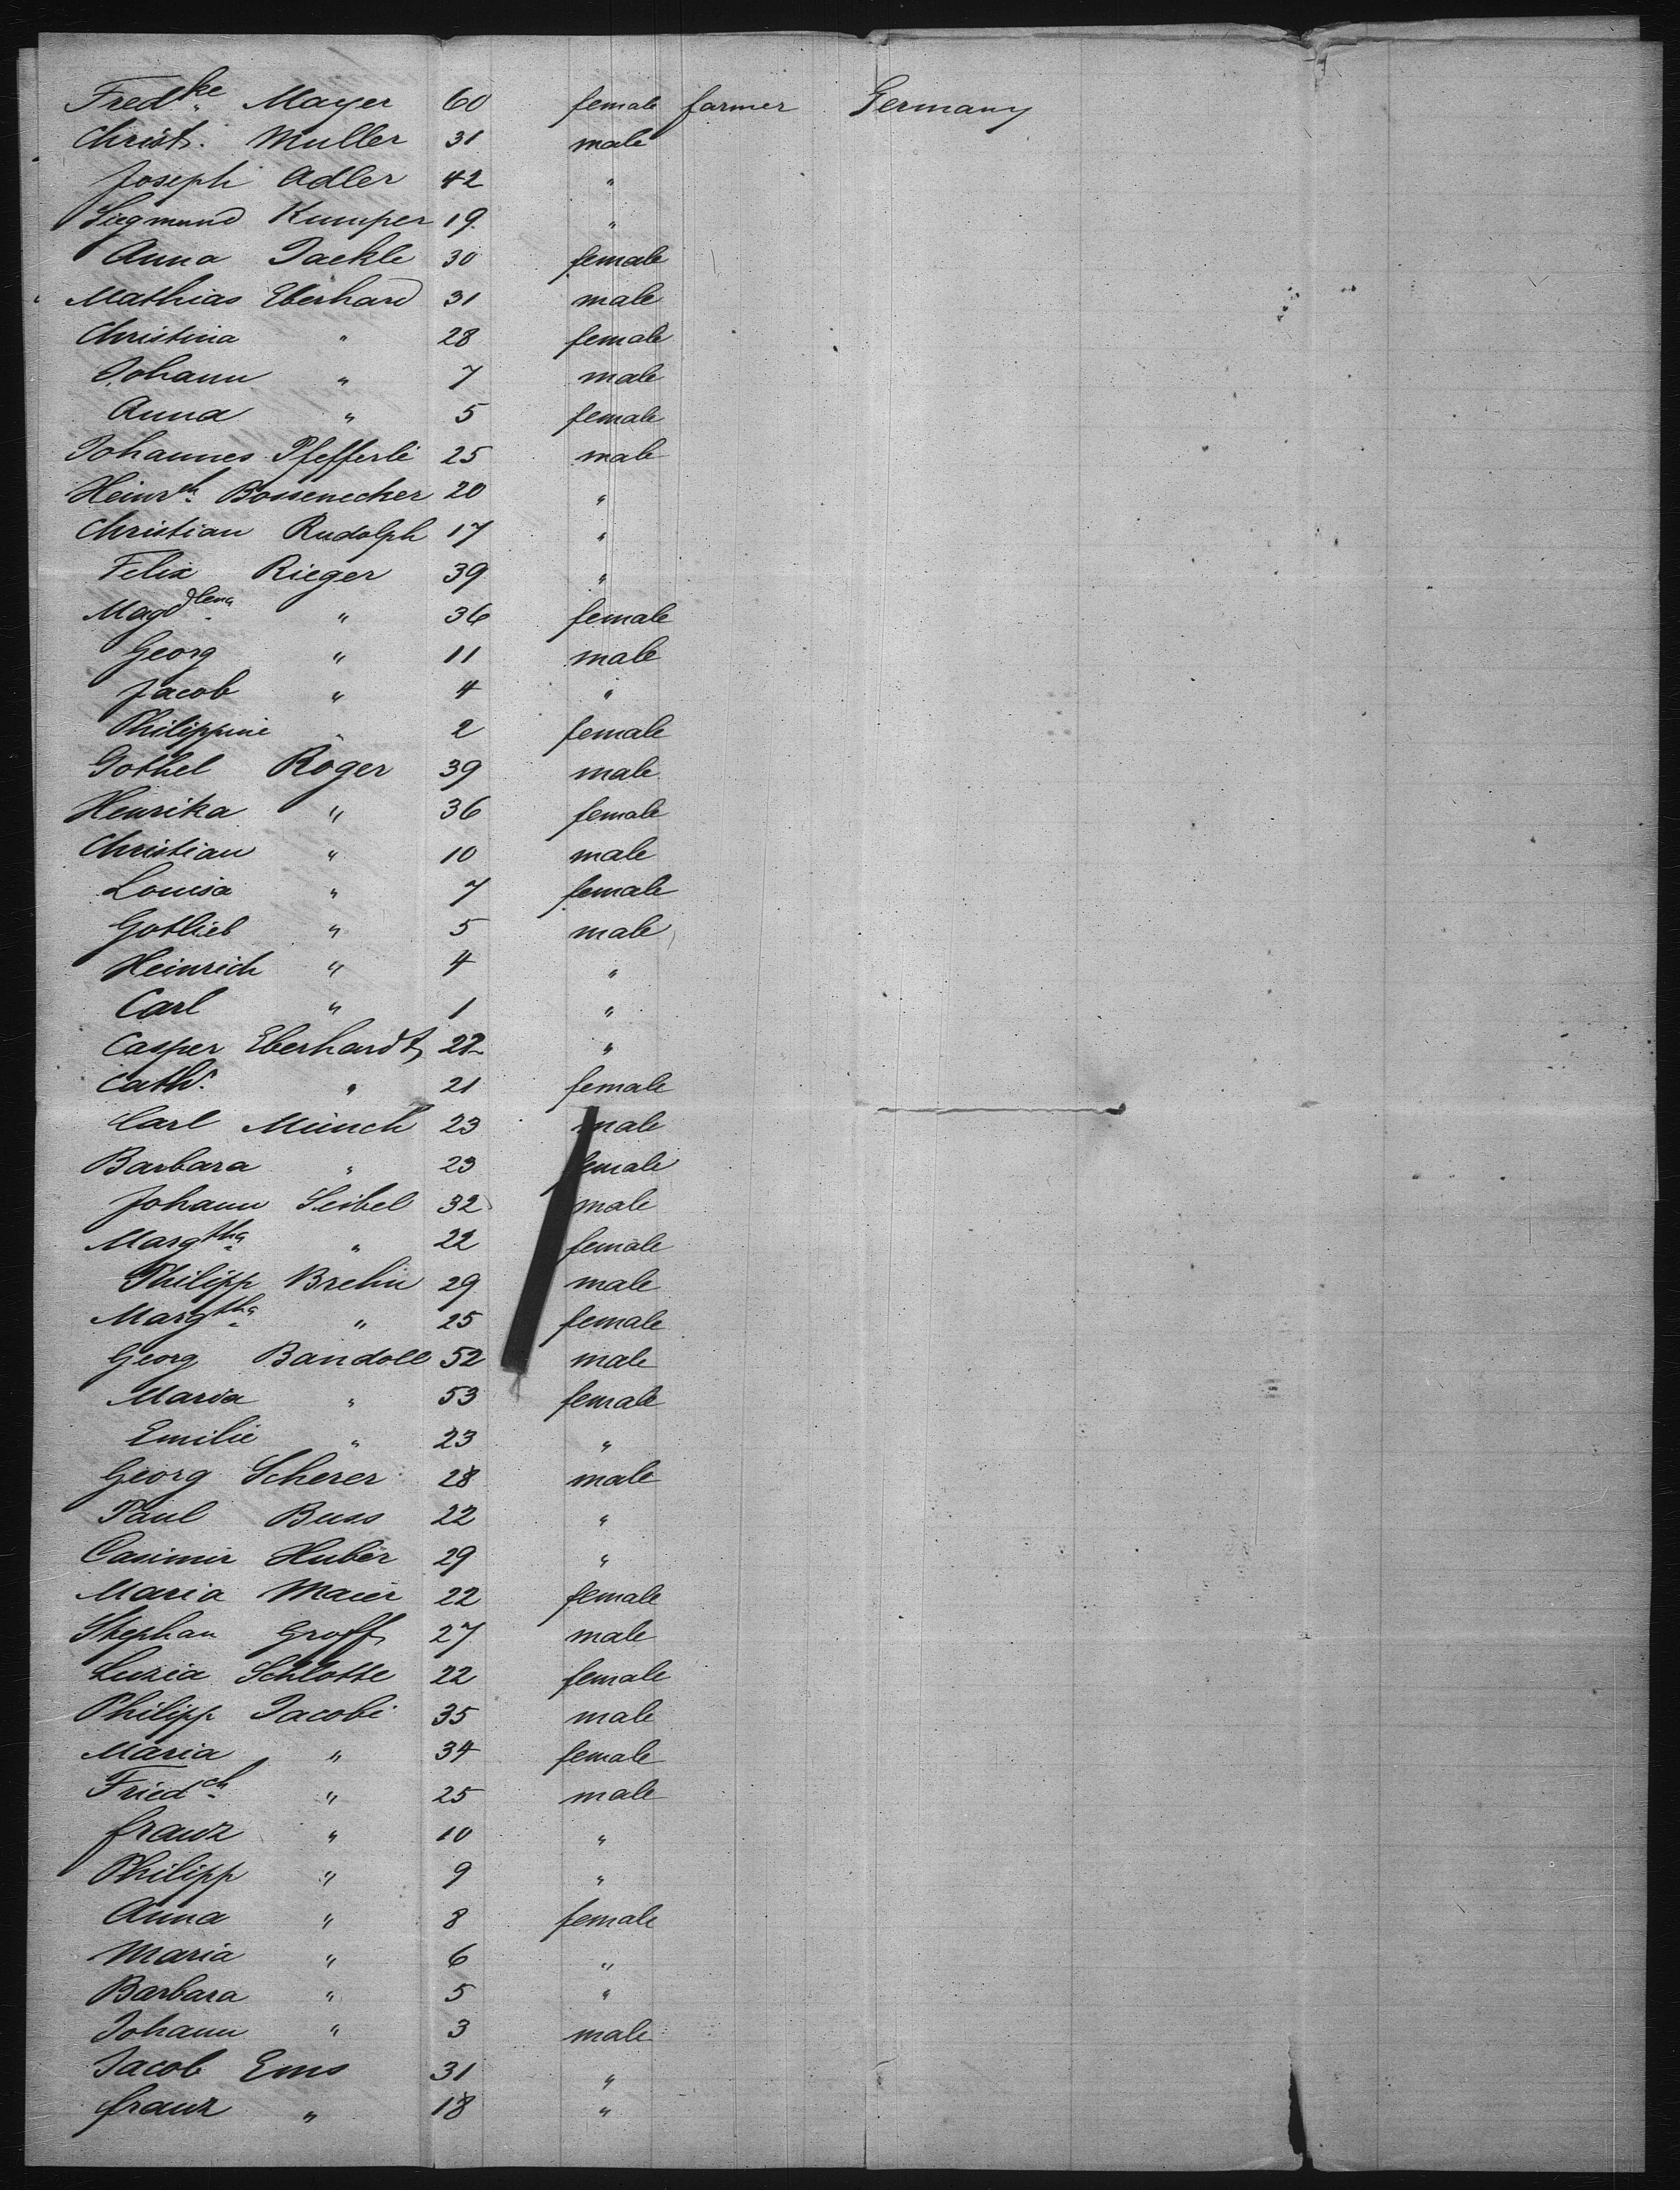 Fredke Mayer 60 female farmer Germany
Christ. Muller 31 male
Joseph Adler 42 "
Siegmund Kumper 19 "
Anna Jaekle 30 female
Mathias Eberhard 31 male
Christina " 28 female
Johann " 7 male
Anna " 5 female
Johannes Pfefferle 25 male
Heinrch Bossenecker 20 "
Christian Rudolph 17 "
Felix Rieger 39 "
Magdlena " 36 female
Georg " 11 male
Jacob " 4 "
Philippine " 2 female
Gothel Roger 39 male
Henrika " 36 female
Christian " 10 male
Louisa " 7 female
Gotlieb " 5 male
Heinrich " 4 "
Carl " 1 "
Casper Eberhardt 22 "
Cath. " 21 female
Carl Münch 23 male
Barbara " 23 female
Johann Seibel 32 male
Margtha " 22 female
Philipp Brehm 29 male
Margtha " 25 female
Georg Bandoll 52 male
Maria " 53 female
Emilie " 23 "
Georg Scherer 28 male
Paul Buss 22 "
Casimir Huber 29 "
Maria Maier 22 female
Stephan Groff 27 male
Luzia Schlotte 22 female
Philipp Jacobi 35 male
Maria " 34 female
Friedch " 25 male
Franz " 10 "
Philipp " 9 "
Anna " 8 female
Maria " 6 "
Barbara " 5 "
Johann " 3 male
Jacob Ems 31 "
Franz " 18 "